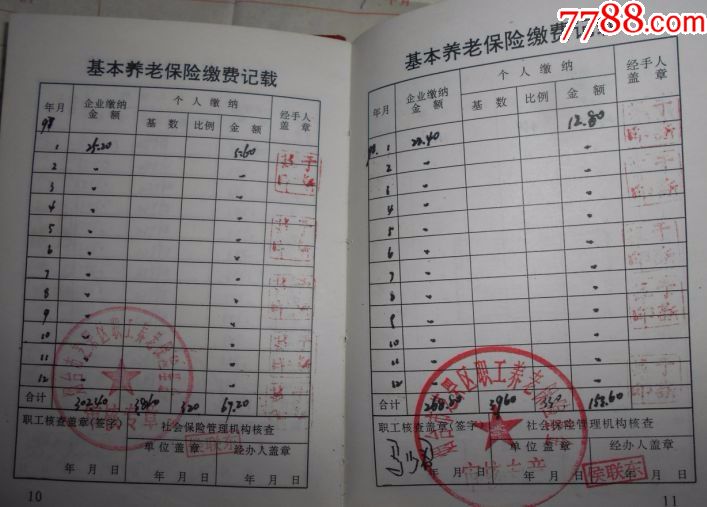 7788.com
基本养老保险缴费记载
年月 企业缴纳金额 个人缴纳 经手人盖章
基数 比例 金额
98
1 25.20 5.60
2 〃 〃
3 〃 〃
4 〃 〃
5 〃 〃
6 〃 〃
7 〃 〃
8 〃 〃
9 〃 〃
10 〃 〃
11 〃 〃
12 〃 〃
合计 302.40 67.20
职工核查盖章(签字) 社会保险管理机构核查
单位盖章 经办人盖章
侯联东
年 月 日 年 月 日 年 月 日
10
基本养老保险缴费记载
年月 企业缴纳金额 个人缴纳 经手人盖章
基数 比例 金额
1 22.40 12.80
2 〃 〃
3 〃 〃
4 〃 〃
5 〃 〃
6 〃 〃
7 〃 〃
8 〃 〃
9 〃 〃
10 〃 〃
11 〃 〃
12 〃 〃
合计 268.80 153.60
职工核查盖章(签字) 社会保险管理机构核查
单位盖章 经办人盖章
侯联东
年 月 日 年 月 日 年 月 日
11